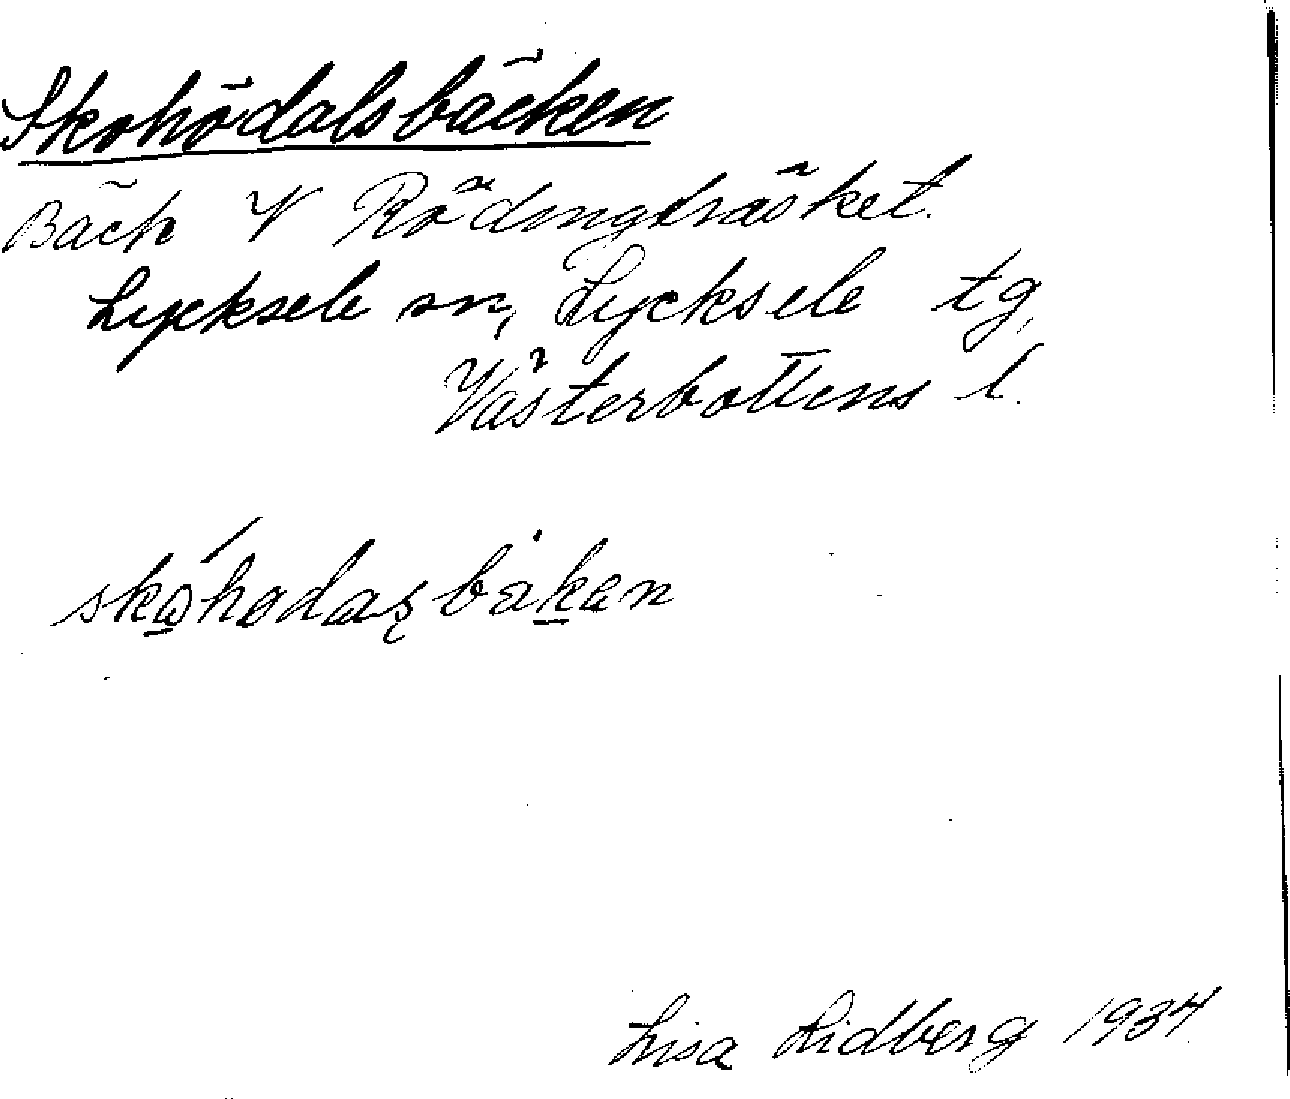 Skohödalsbäcken
Bäck V Rödingträsket.
Lycksele sn, Lycksele tg,
Västerbottens l.
Lisa Lidberg 1934